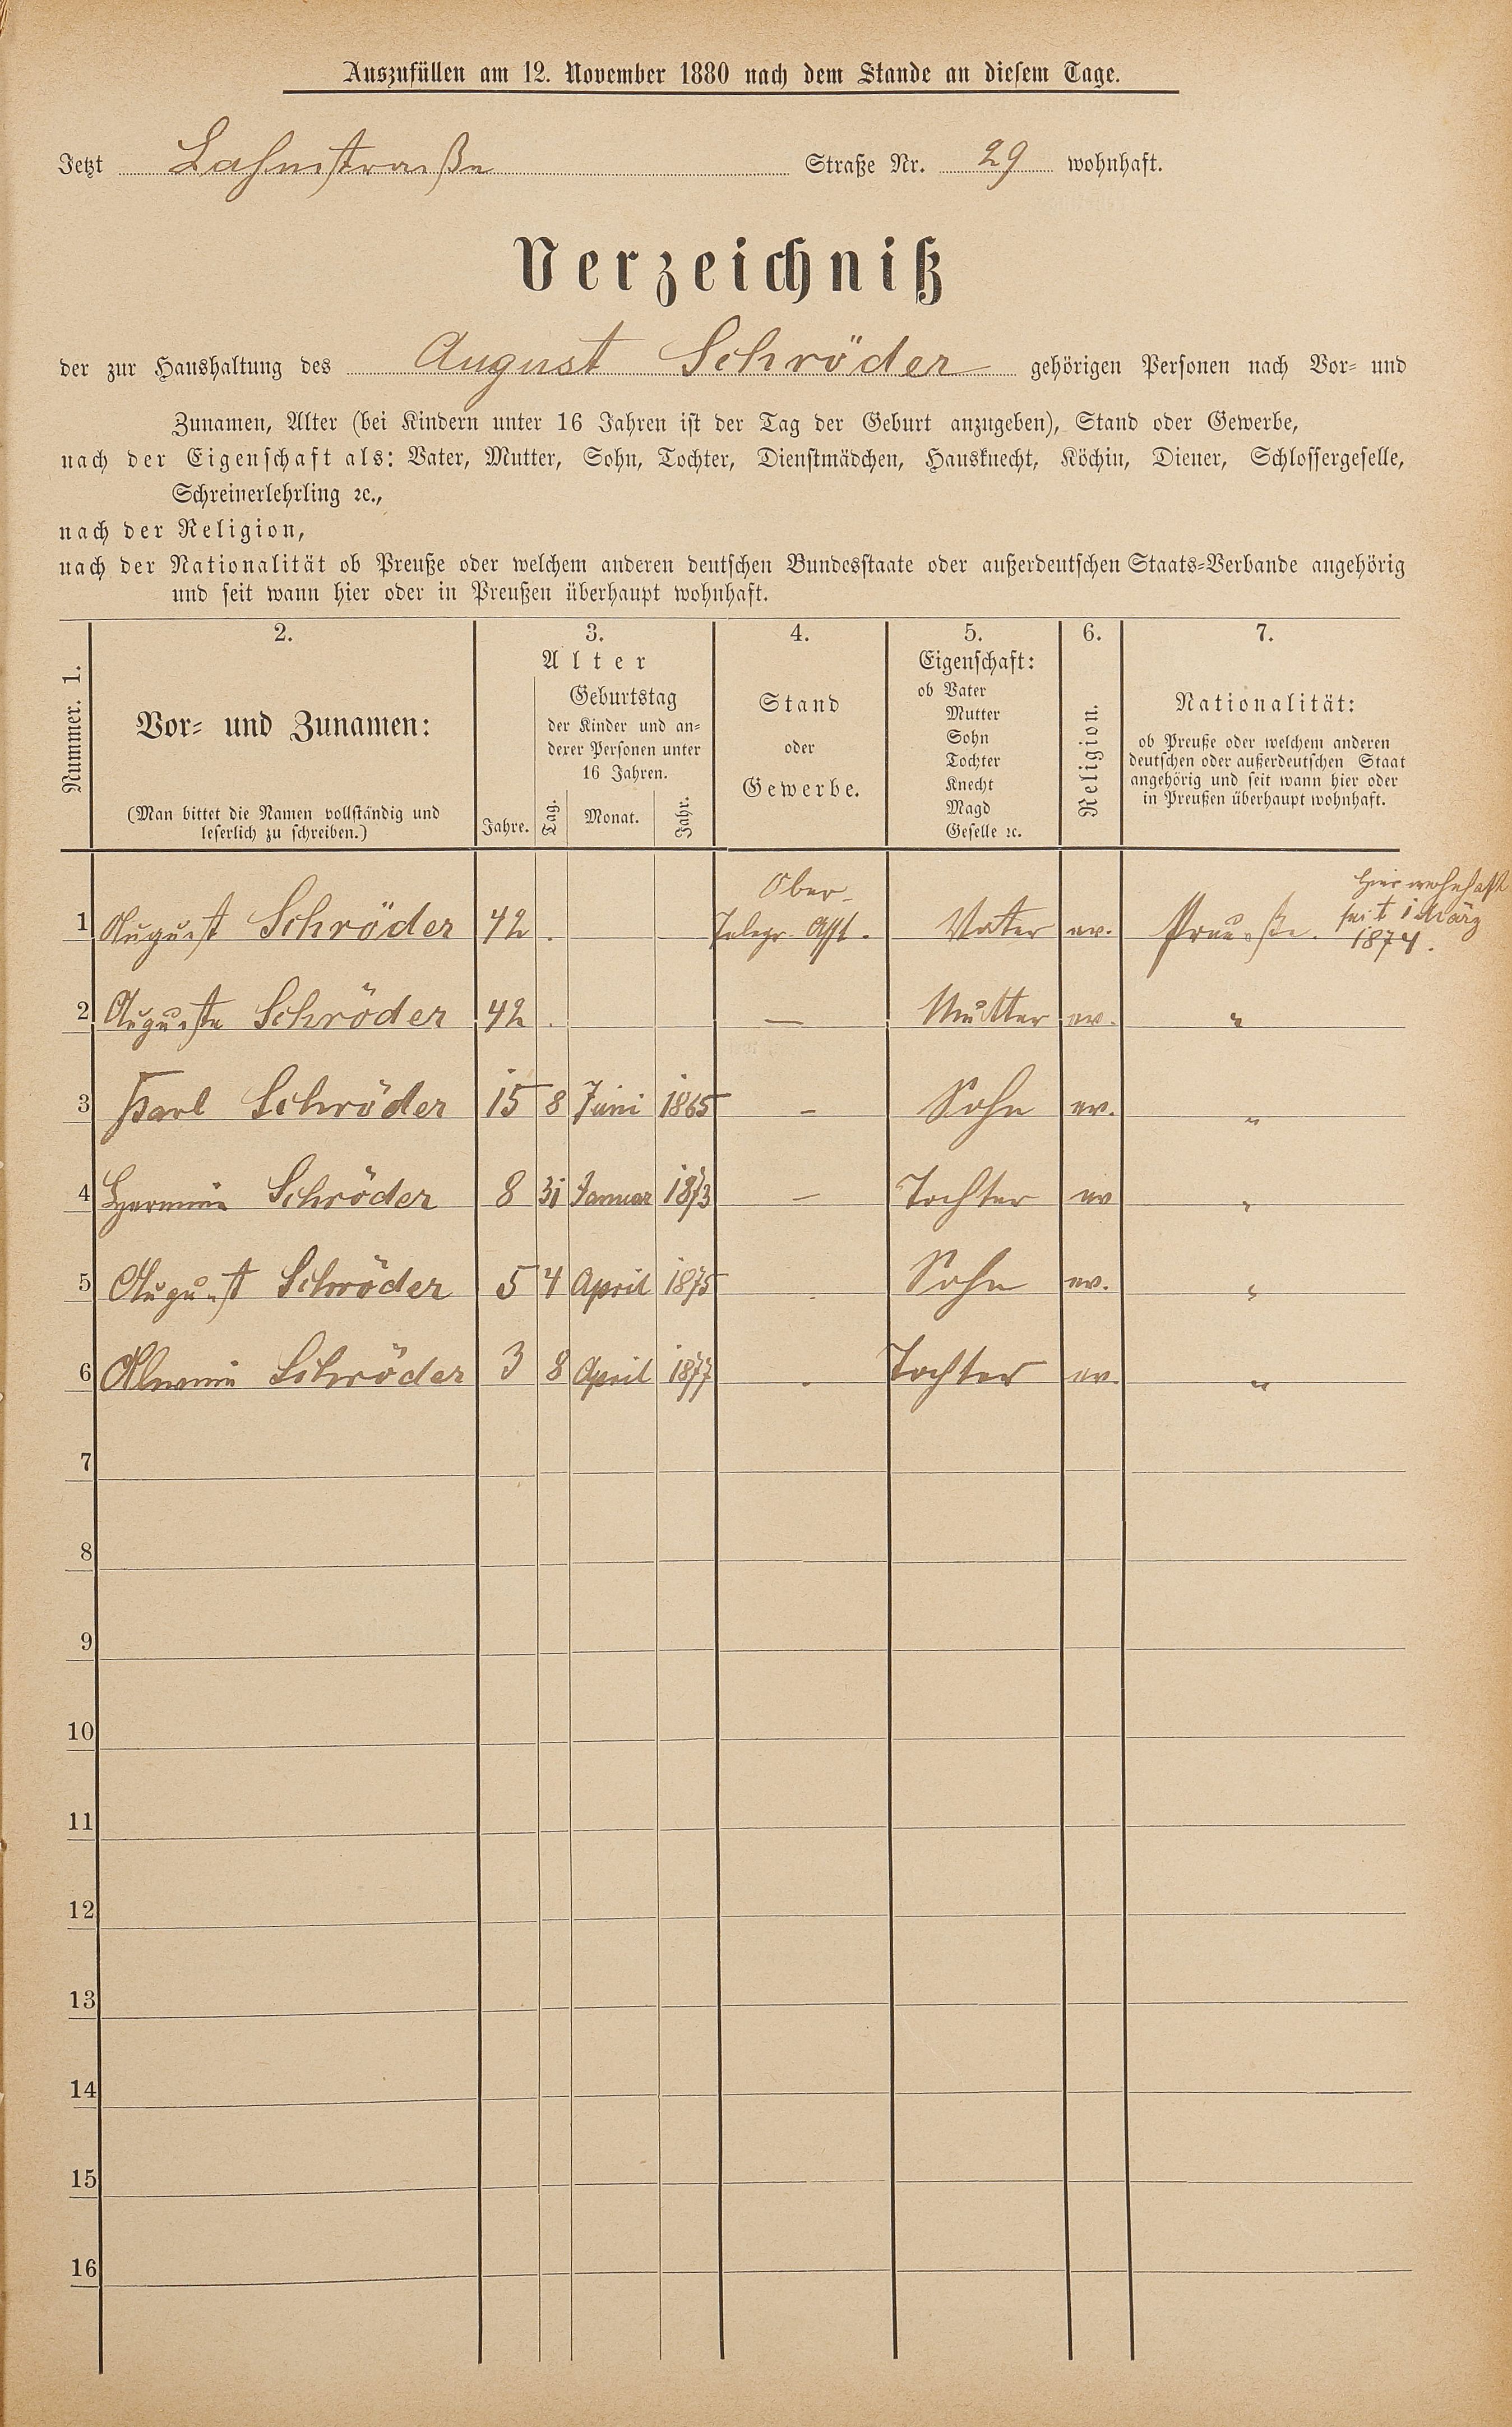 Auszufüllen am 12. November 1880 nach dem Stande an diesem Tage.
Jetzt Lahnstraße Straße Nr. 29 wohnhaft.
Verzeichniß
der zur Haushaltung des August Schröder gehörigen Personen nach Vor- und
Zunamen, Alter (bei Kindern unter 16 Jahren ist der Tag der Geburt anzugeben), Stand oder Gewerbe,
nach der Eigenschaft als: Vater, Mutter, Sohn, Tochter, Dienstmädchen, Hausknecht, Köchin, Diener, Schlossergeselle,
Schreinerlehrling ꝛc.,
nach der Religion,
nach der Nationalität ob Preuße oder welchem anderen deutschen Bundesstaate oder außerdeutschen Staats-Verbande angehörig
und seit wann hier oder in Preußen überhaupt wohnhaft.
Nummer. 1.
2.
Vor- und Zunamen:
(Man bittet die Namen vollständig und
leserlich zu schreiben.)
3.
Alter
Geburtstag
der Kinder und an-
derer Personen unter
16 Jahren.
Jahre. Tag. Monat. Jahr.
4.
Stand
oder
Gewerbe.
5.
Eigenschaft:
ob Vater
Mutter
Sohn
Tochter
Knecht
Magd
Geselle ꝛc.
6.
Religion.
7.
Nationalität:
ob Preuße oder welchem anderen
deutschen oder außerdeutschen Staat
angehörig und seit wann hier oder
in Preußen überhaupt wohnhaft.
1 August Schröder 42 . Ober- Telegr. Asst. Vater ev. Preuße. hier wohnhaft seit 1 März 1874.
2 Auguste Schröder 42 . — Mutter ev. "
3 Karl Schröder 15 8 Juni 1865 – Sohn ev. "
4 Hermine Schröder 8 31 Januar 1873 — Tochter ev "
5 August Schröder 5 4 April 1875 . Sohn ev. "
6 Schröder 3 8 April 1877 . Tochter ev. "
7
8
9
10
11
12
13
14
15
16